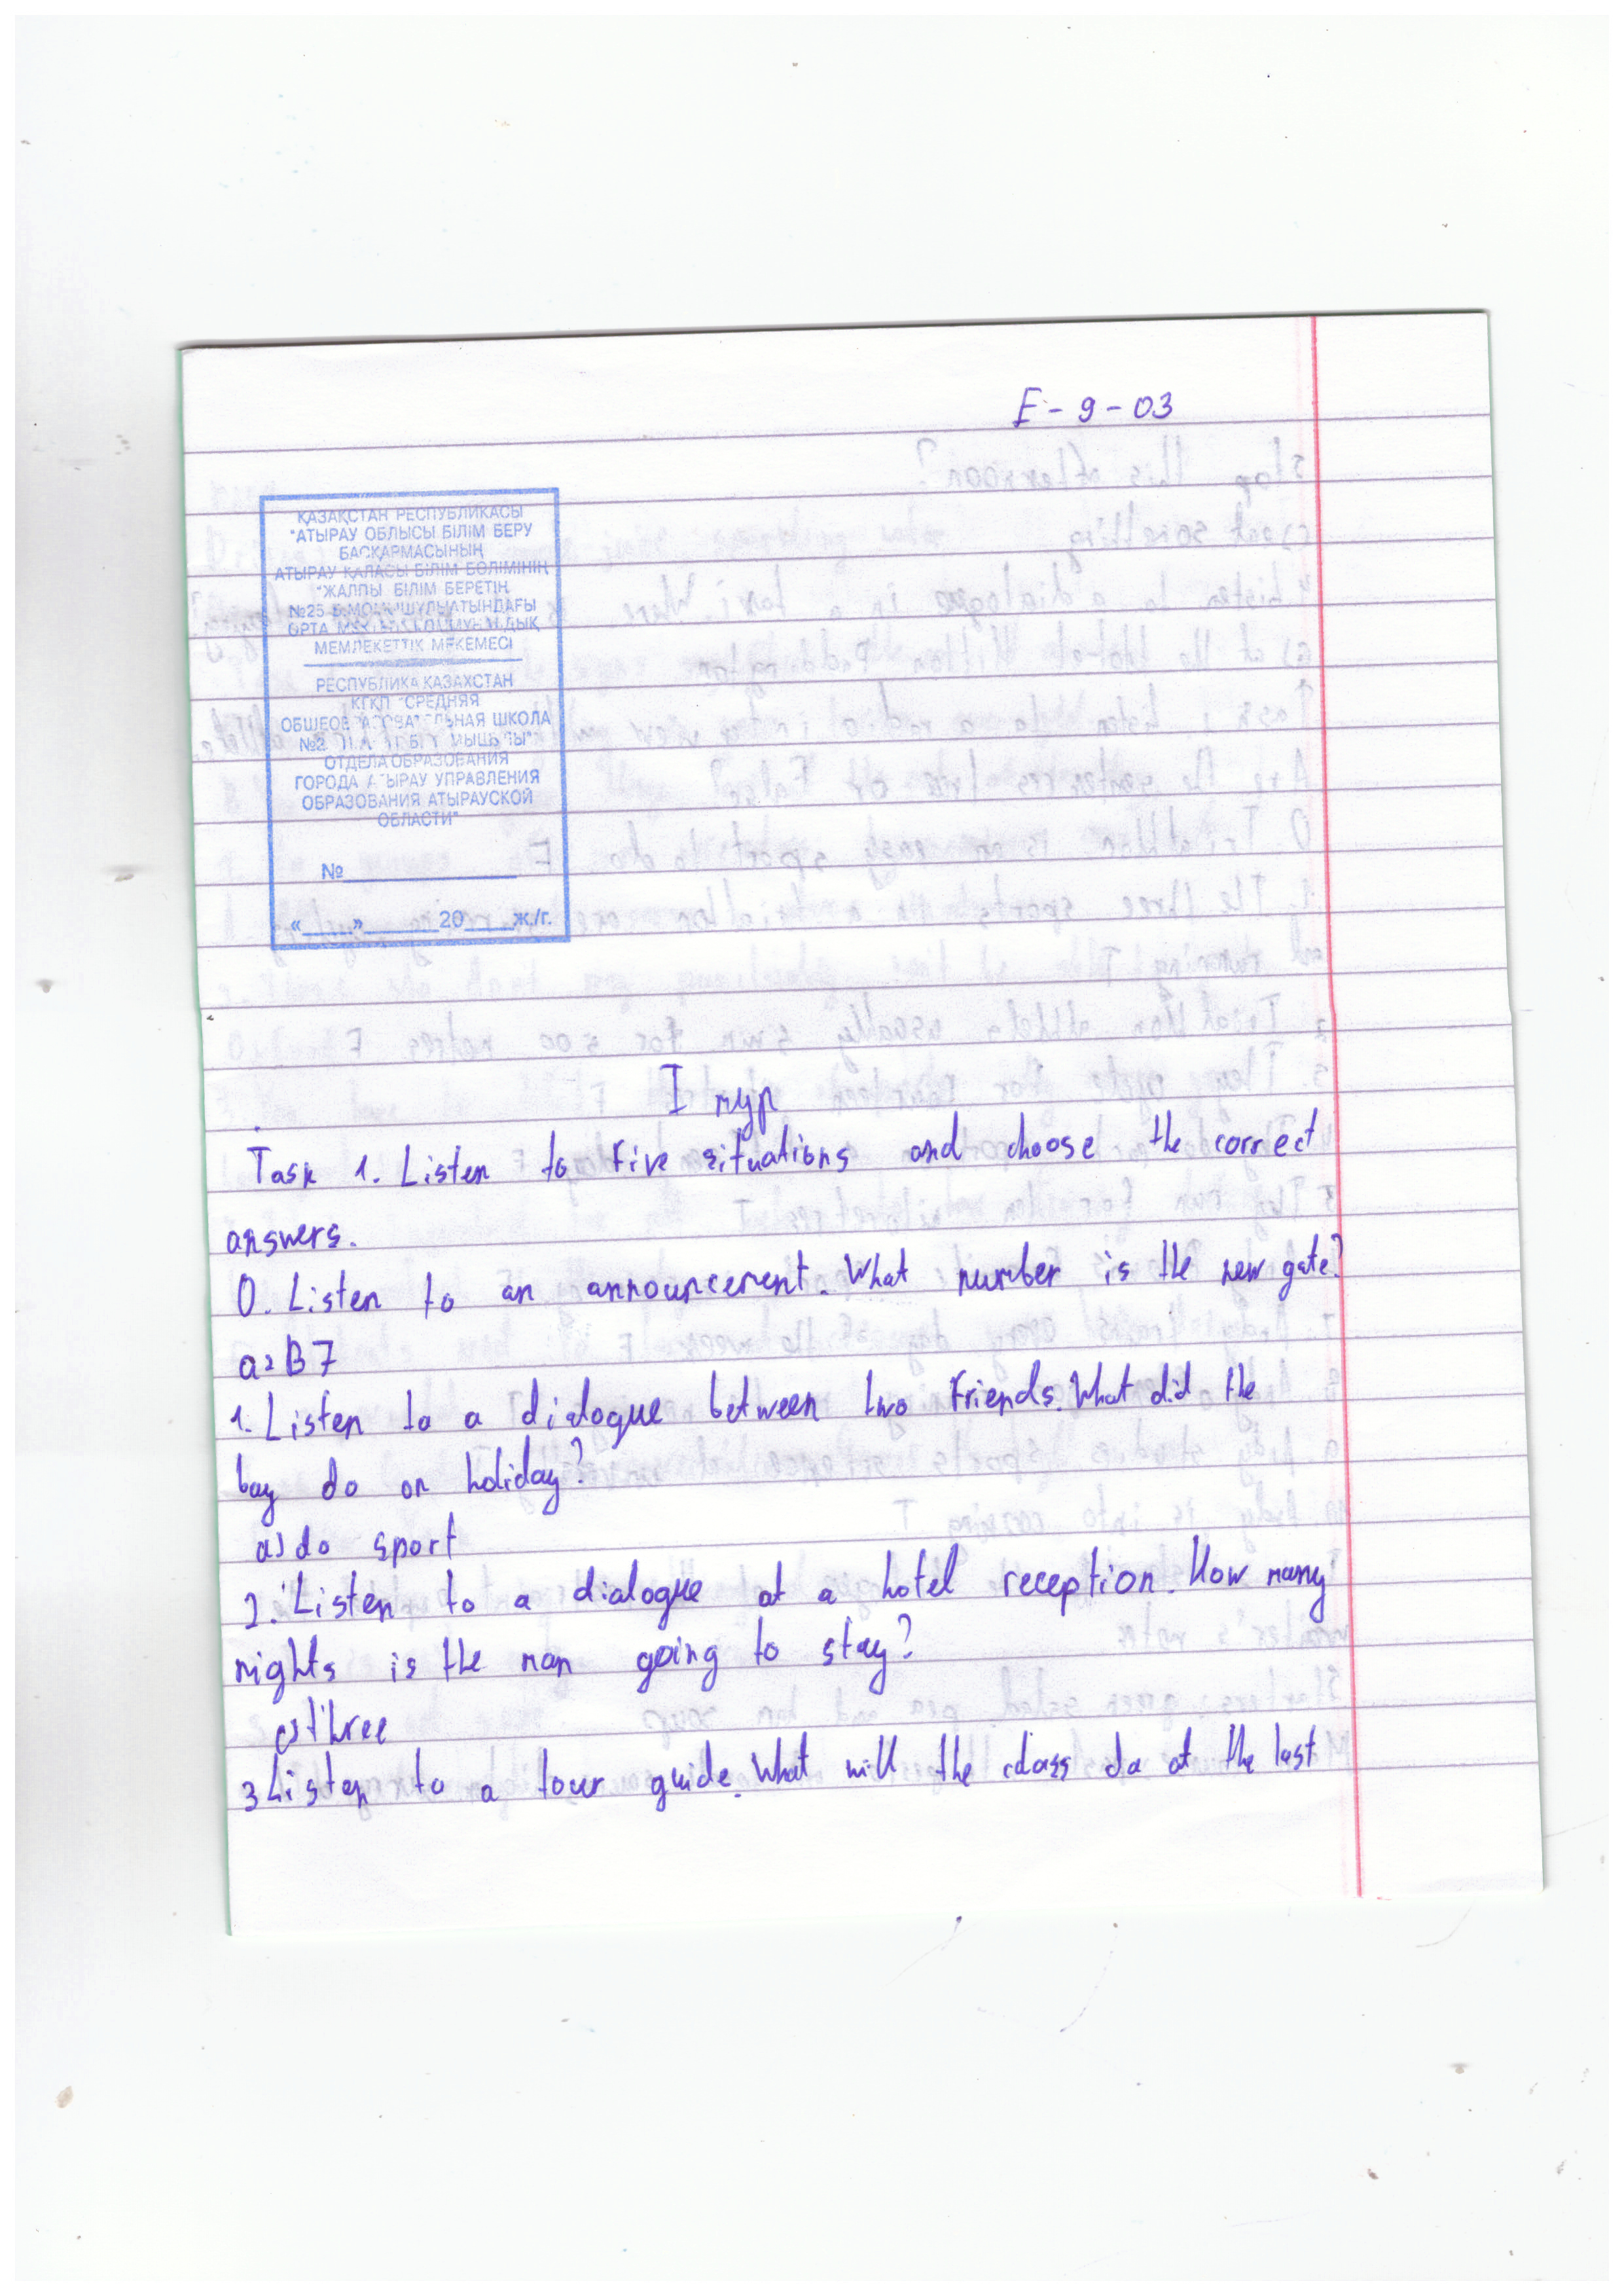 E-9-03
ҚАЗАҚСТАН РЕСПУБЛИКАСЫ
"АТЫРАУ ОБЛЫСЫ БІЛІМ БЕРУ
БАСҚАРМАСЫНЫҢ
АТЫРАУ ҚАЛАСЫ БІЛІМ БӨЛІМІНІҢ
"ЖАЛПЫ БІЛІМ БЕРЕТІН
№25
ОРТА
МЕМЛЕКЕТТІК МЕКЕМЕСІ
РЕСПУБЛИКА КАЗАХСТАН
КГКП "СРЕДНЯЯ
ШКОЛА
ОТДЕЛА ОБРАЗОВАНИЯ
ГОРОДА АТЫРАУ УПРАВЛЕНИЯ
ОБРАЗОВАНИЯ АТЫРАУСКОЙ
ОБЛАСТИ"
№
« » 20 ж./г.
I тур
Task 1. Listen to five situations and choose the correct
answers.
0. Listen to an announcement. What number is the new gate?
a2B7
1. Listen to a dialogue between two friends. What did the
boy do on holiday?
a) do sport
2. Listen to a dialogue at a hotel reception. How many
nights is the man going to stay?
c) three
3 Listen to a tour guide. What will the class do at the last